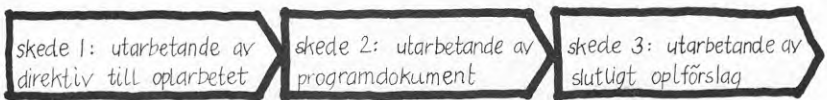 skede 1: utarbetande av
direktiv till oplarbetet
skede 2: utarbetande av
programdokument
skede 3: utarbetande av
slutligt oplförslag